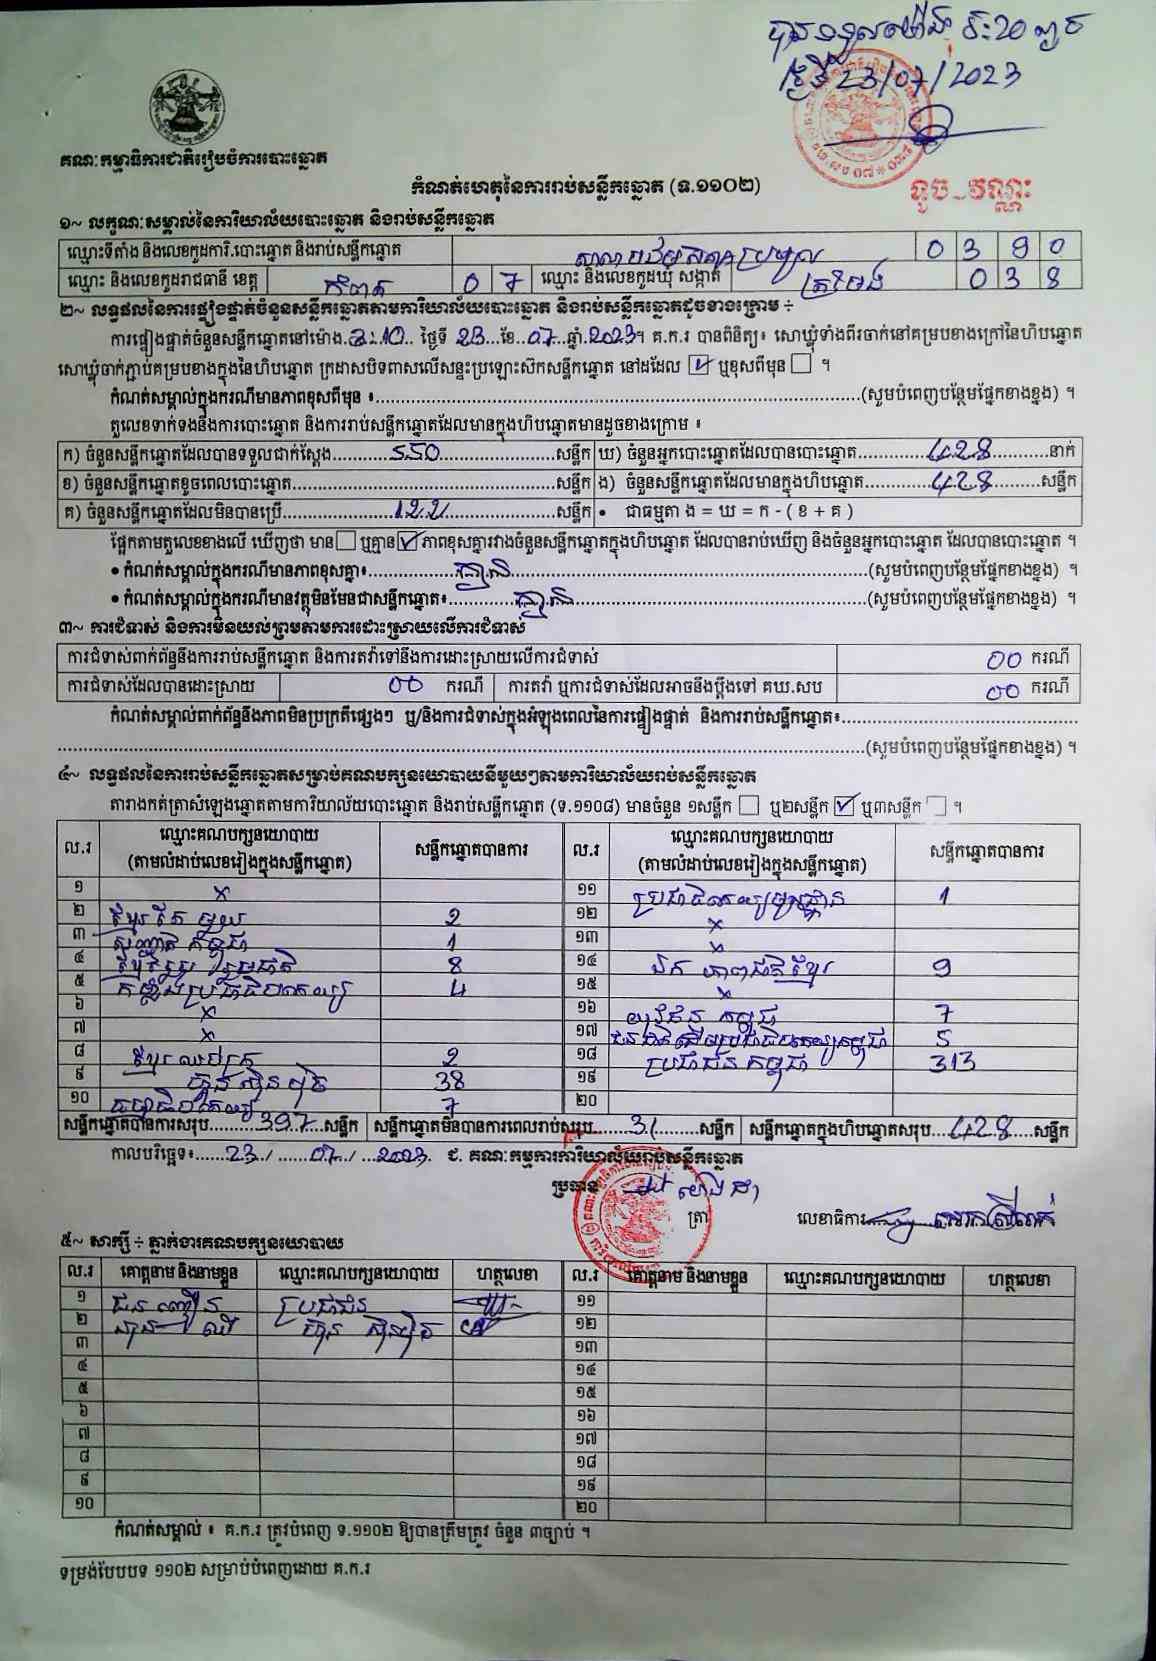 បានទទួលម៉ោង ៩:20 
ថ្ងៃទី 23/07/2023
គណៈកម្មាធិការជាតិរៀបចំការបោះឆ្នោត
កំណត់ហេតុនៃការរាប់សន្លឹកឆ្នោត (ទ.១១០២)
ទូច វណ្ណះ
១~ លក្ខណៈសម្គាល់នៃការិយាល័យបោះឆ្នោត និងរាប់សន្លឹកឆ្នោត
ឈ្មោះទីតាំង និងលេខកូដការិ.បោះឆ្នោត និងរាប់សន្លឹកឆ្នោត 0 3 9 0
ឈ្មោះ និងលេខកូដរាជធានី ខេត្ត កំពត 0 7 ឈ្មោះ និងលេខកូដឃុំ សង្កាត់ ត្រមែង 0 3 8
២~ លទ្ធផលនៃការផ្ទៀងផ្ទាត់ចំនួនសន្លឹកឆ្នោតតាមការិយាល័យបោះឆ្នោត និងរាប់សន្លឹកឆ្នោតដូចខាងក្រោម ÷
ការផ្ទៀងផ្ទាត់ចំនួនសន្លឹកឆ្នោតនៅម៉ោង 3:10 ថ្ងៃទី 23 ខែ 07 ឆ្នាំ 2023។ គ.ក.រ បានពិនិត្យ៖ សោឃ្លុំទាំងពីរចាក់នៅគម្របខាងក្រៅនៃហិបឆ្នោត
សោឃ្លុំចាក់ភ្ជាប់គម្របខាងក្នុងនៃហិបឆ្នោត ក្រដាសបិទពាសលើសន្ទះប្រឡោះស៊កសន្លឹកឆ្នោត នៅដដែល ☑ ឬខុសពីមុន ☐ ។
កំណត់សម្គាល់ក្នុងករណីមានភាពខុសពីមុន ៖ (សូមបំពេញបន្ថែមផ្នែកខាងខ្នង) ។
តួលេខទាក់ទងនឹងការបោះឆ្នោត និងការរាប់សន្លឹកឆ្នោតដែលមានក្នុងហិបឆ្នោតមានដូចខាងក្រោម ៖
ក) ចំនួនសន្លឹកឆ្នោតដែលបានទទួលជាក់ស្តែង 550 សន្លឹក ឃ) ចំនួនអ្នកបោះឆ្នោតដែលបានបោះឆ្នោត 428 នាក់
ខ) ចំនួនសន្លឹកឆ្នោតខូចពេលបោះឆ្នោត សន្លឹក ង) ចំនួនសន្លឹកឆ្នោតដែលមានក្នុងហិបឆ្នោត 428 សន្លឹក
គ) ចំនួនសន្លឹកឆ្នោតដែលមិនបានប្រើ 122 សន្លឹក • ជាធម្មតា ង = ឃ = ក - ( ខ + គ )
ផ្អែកតាមតួលេខខាងលើ ឃើញថា មាន ☐ ឬគ្មាន ☑ ភាពខុសគ្នារវាងចំនួនសន្លឹកឆ្នោតក្នុងហិបឆ្នោត ដែលបានរាប់ឃើញ និងចំនួនអ្នកបោះឆ្នោត ដែលបានបោះឆ្នោត ។
• កំណត់សម្គាល់ក្នុងករណីមានភាពខុសគ្នា៖ គ្មាន (សូមបំពេញបន្ថែមផ្នែកខាងខ្នង) ។
• កំណត់សម្គាល់ក្នុងករណីមានវត្ថុមិនមែនជាសន្លឹកឆ្នោត៖ គ្មាន (សូមបំពេញបន្ថែមផ្នែកខាងខ្នង) ។
៣~ ការជំទាស់ និងការមិនយល់ព្រមតាមការដោះស្រាយលើការជំទាស់
ការជំទាស់ពាក់ព័ន្ធនឹងការរាប់សន្លឹកឆ្នោត និងការតវ៉ាទៅនឹងការដោះស្រាយលើការជំទាស់ 00 ករណី
ការជំទាស់ដែលបានដោះស្រាយ 00 ករណី ការតវ៉ា ឬការជំទាស់ដែលអាចនឹងប្តឹងទៅ គឃ.សប 00 ករណី
កំណត់សម្គាល់ពាក់ព័ន្ធនឹងភាពមិនប្រក្រតីផ្សេងៗ ឬ/និងការជំទាស់ក្នុងអំឡុងពេលនៃការផ្ទៀងផ្ទាត់ និងការរាប់សន្លឹកឆ្នោត៖
(សូមបំពេញបន្ថែមផ្នែកខាងខ្នង) ។
៤~ លទ្ធផលនៃការរាប់សន្លឹកឆ្នោតសម្រាប់គណបក្សនយោបាយនីមួយៗតាមការិយាល័យរាប់សន្លឹកឆ្នោត
តារាងកត់ត្រាសំឡេងឆ្នោតតាមការិយាល័យបោះឆ្នោត និងរាប់សន្លឹកឆ្នោត (ទ.១១០៨) មានចំនួន ១សន្លឹក ☐ ឬ២សន្លឹក ☑ ឬ៣សន្លឹក ☐ ។
ល.រ ឈ្មោះគណបក្សនយោបាយ (តាមលំដាប់លេខរៀងក្នុងសន្លឹកឆ្នោត) សន្លឹកឆ្នោតបានការ ល.រ ឈ្មោះគណបក្សនយោបាយ (តាមលំដាប់លេខរៀងក្នុងសន្លឹកឆ្នោត) សន្លឹកឆ្នោតបានការ
១ x ១១ ប្រជាធិបតេយ្យមូលដ្ឋាន 1
២ ខ្មែរតែមួយ 2 ១២ x
៣ សញ្ជាតិកម្ពុជា 1 ១៣ x
៤ ខ្មែររួបរួមជាតិ 8 ១៤ ឯកភាពជាតិខ្មែរ 9
៥ កម្លាំងប្រជាធិបតេយ្យ 4 ១៥ x
៦ x ១៦ យុវជនកម្ពុជា 7
៧ x ១៧ ជនជាតិដើមប្រជាធិបតេយ្យកម្ពុជា 5
៨ ខ្មែរឈប់ក្រ 2 ១៨ ប្រជាជនកម្ពុជា 313
៩ ហ៊្វុនស៊ិនប៉ិច 38 ១៩
១០ ធម្មាធិបតេយ្យ 7 ២០
សន្លឹកឆ្នោតបានការសរុប 397 សន្លឹក សន្លឹកឆ្នោតមិនបានការពេលរាប់សរុប 31 សន្លឹក សន្លឹកឆ្នោតក្នុងហិបឆ្នោតសរុប 428 សន្លឹក
កាលបរិច្ឆេទ៖ 23 / 07 / 2023 ជ. គណៈកម្មការការិយាល័យរាប់សន្លឹកឆ្នោត
ប្រធាន
ត្រា លេខាធិការ
៥~ សាក្សី ÷ ភ្នាក់ងារគណបក្សនយោបាយ
ល.រ គោត្តនាម និងនាមខ្លួន ឈ្មោះគណបក្សនយោបាយ ហត្ថលេខា ល.រ គោត្តនាម និងនាមខ្លួន ឈ្មោះគណបក្សនយោបាយ ហត្ថលេខា
១ ជន ញឿន ប្រជាជន ១១
២ ហ៊្វុនស៊ិនប៉ិច ១២
៣ ១៣
៤ ១៤
៥ ១៥
៦ ១៦
៧ ១៧
៨ ១៨
៩ ១៩
១០ ២០
កំណត់សម្គាល់ ៖ គ.ក.រ ត្រូវបំពេញ ទ.១១០២ ឱ្យបានត្រឹមត្រូវ ចំនួន ៣ច្បាប់ ។
ទម្រង់បែបបទ ១១០២ សម្រាប់បំពេញដោយ គ.ក.រ